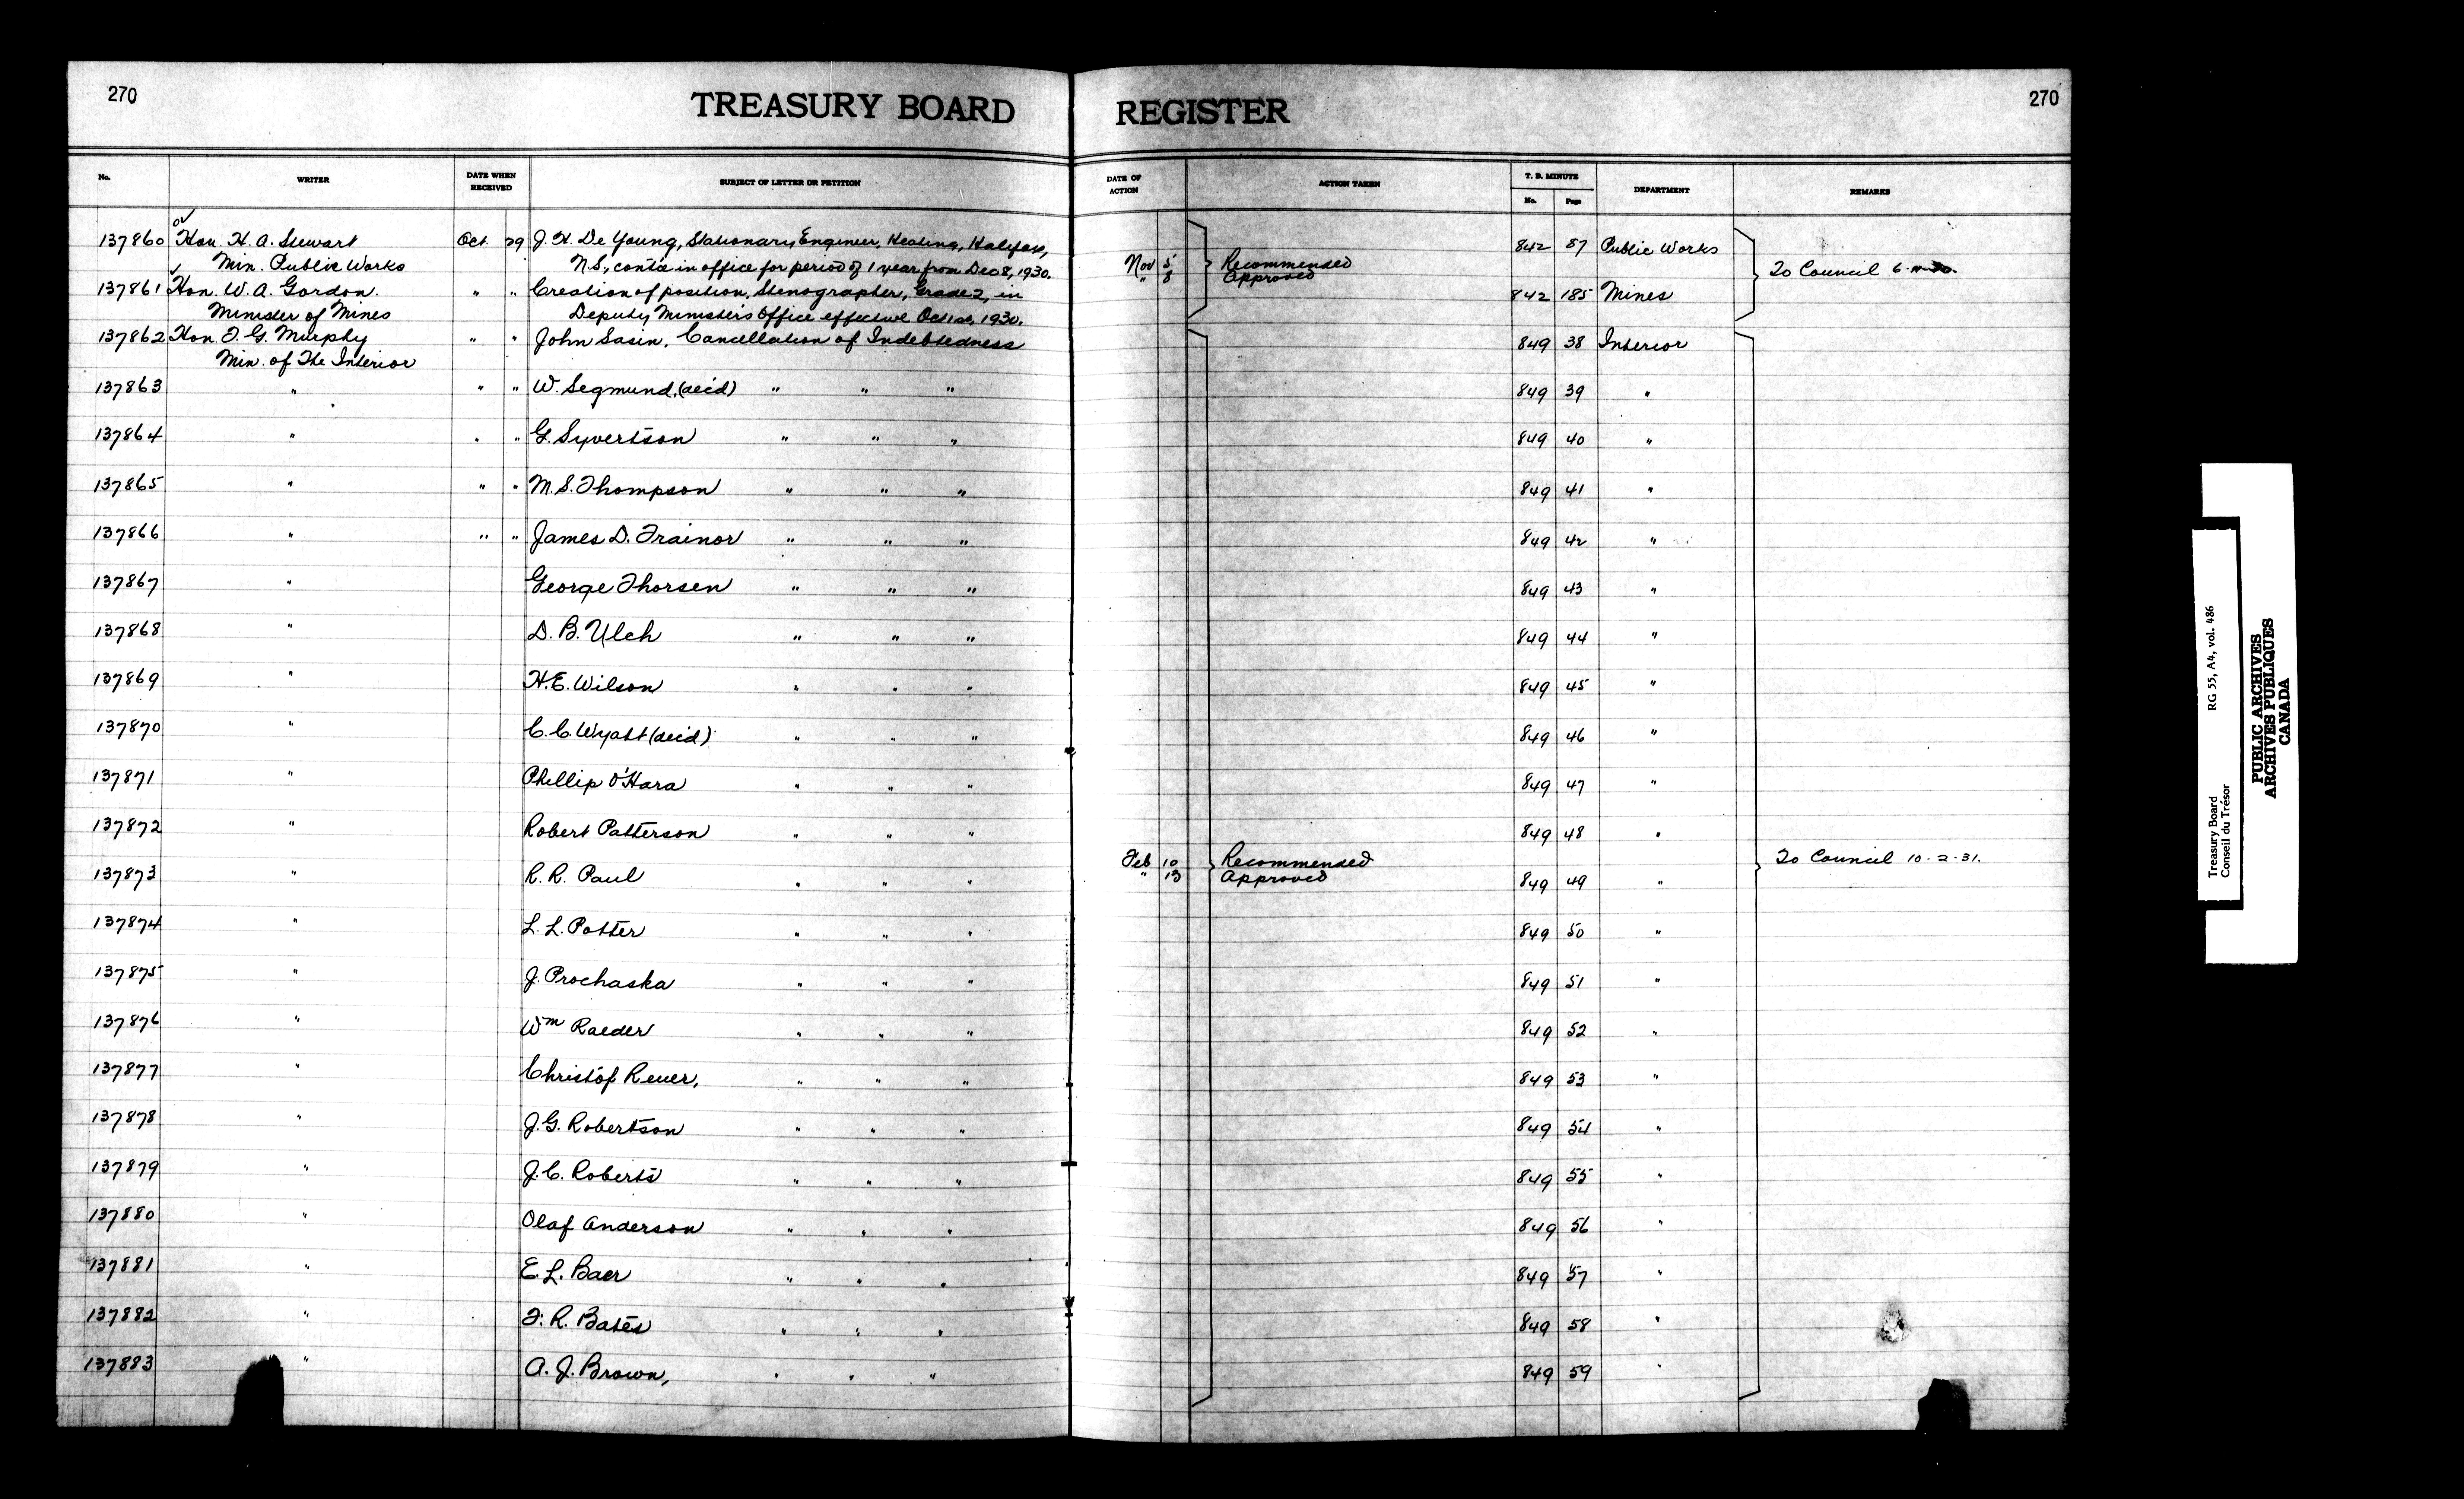 270
TREASURY BOARD REGISTER
270
No. WRITER DATE WHEN RECEIVED SUBJECT OF LETTER OR PETITION DATE OF ACTION ACTION TAKEN T. B. MINUTE No. Page DEPARTMENT REMARKS
137860 Hon. H. A. Stewart Oct. 29 J. H. De Young, Stationary Engineer, Heating, Halifax, 842 87 Public Works
Min. Public Works N.S., cont'ce in office for period of 1 year from Dec 8, 1930. Nov 5 Recommended To Council 6-11-30.
" 8 Approved
137861 Hon. W. A. Gordon. " " Creation of position, Stenographer, Grade 2, in 842 185 Mines
Minister of Mines Deputy Minister's Office effective Oct 1st, 1930.
137862 Hon. T. G. Murphy " " John Sasin, Cancellation of Indebtedness 849 38 Interior
Min. of The Interior
137863 " " " W. Segmund, (dec'd) " " " 849 39 "
137864 " " " G. Syvertson " " " 849 40 "
137865 " " " M. S. Thompson " " " 849 41 "
137866 " " " James D. Trainor " " " 849 42 "
137867 " George Thorsen " " " 849 43 "
137868 " D. B. Ulch " " " 849 44 "
137869 " H. E. Wilson " " " 849 45 "
137870 " C. C. Wyatt (dec'd) " " " 849 46 "
137871 " Phillip O'Hara " " " 849 47 "
137872 " Robert Patterson " " " 849 48 "
Feb 10 Recommended To Council 10-2-31.
" 13 Approved
137873 " R. R. Paul " " " 849 49 "
137874 " L. L. Potter " " " 849 50 "
137875 " J. Prochaska " " " 849 51 "
137876 " Wm Raeder " " " 849 52 "
137877 " Christof Reuer, " " " 849 53 "
137878 " J. G. Robertson " " " 849 54 "
137879 " J. C. Roberts " " " 849 55 "
137880 " Olaf Anderson " " " 849 56 "
137881 " E. L. Baer " " " 849 57 "
137882 " F. R. Bates " " " 849 58 "
137883 " A. J. Brown, " " " 849 59 "
Treasury Board RG 55, A4, vol. 486
Conseil du Trésor
PUBLIC ARCHIVES
ARCHIVES PUBLIQUES
CANADA